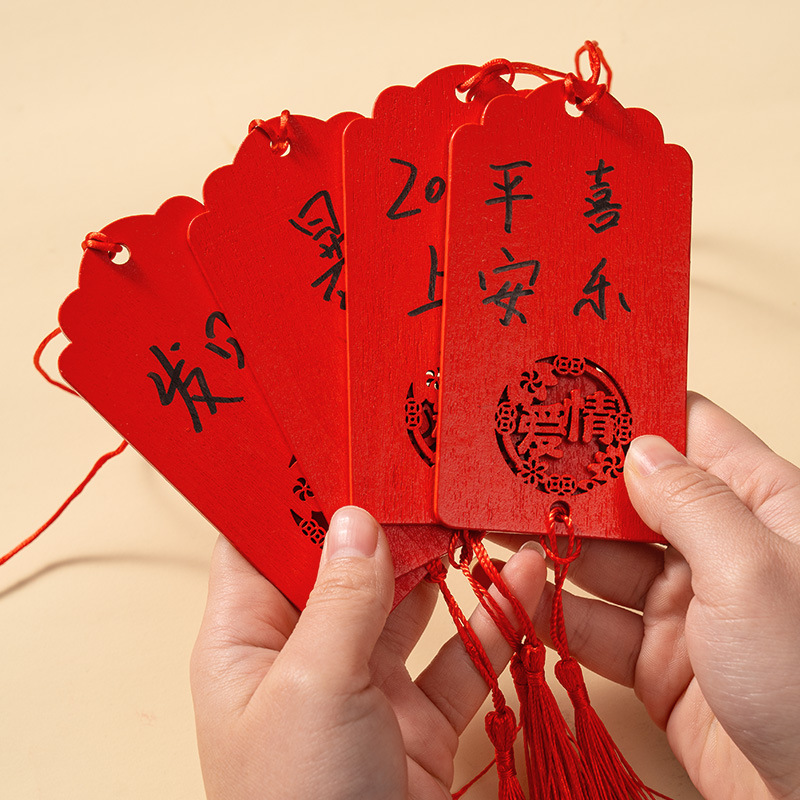 发
20
上
平安
喜乐
爱情